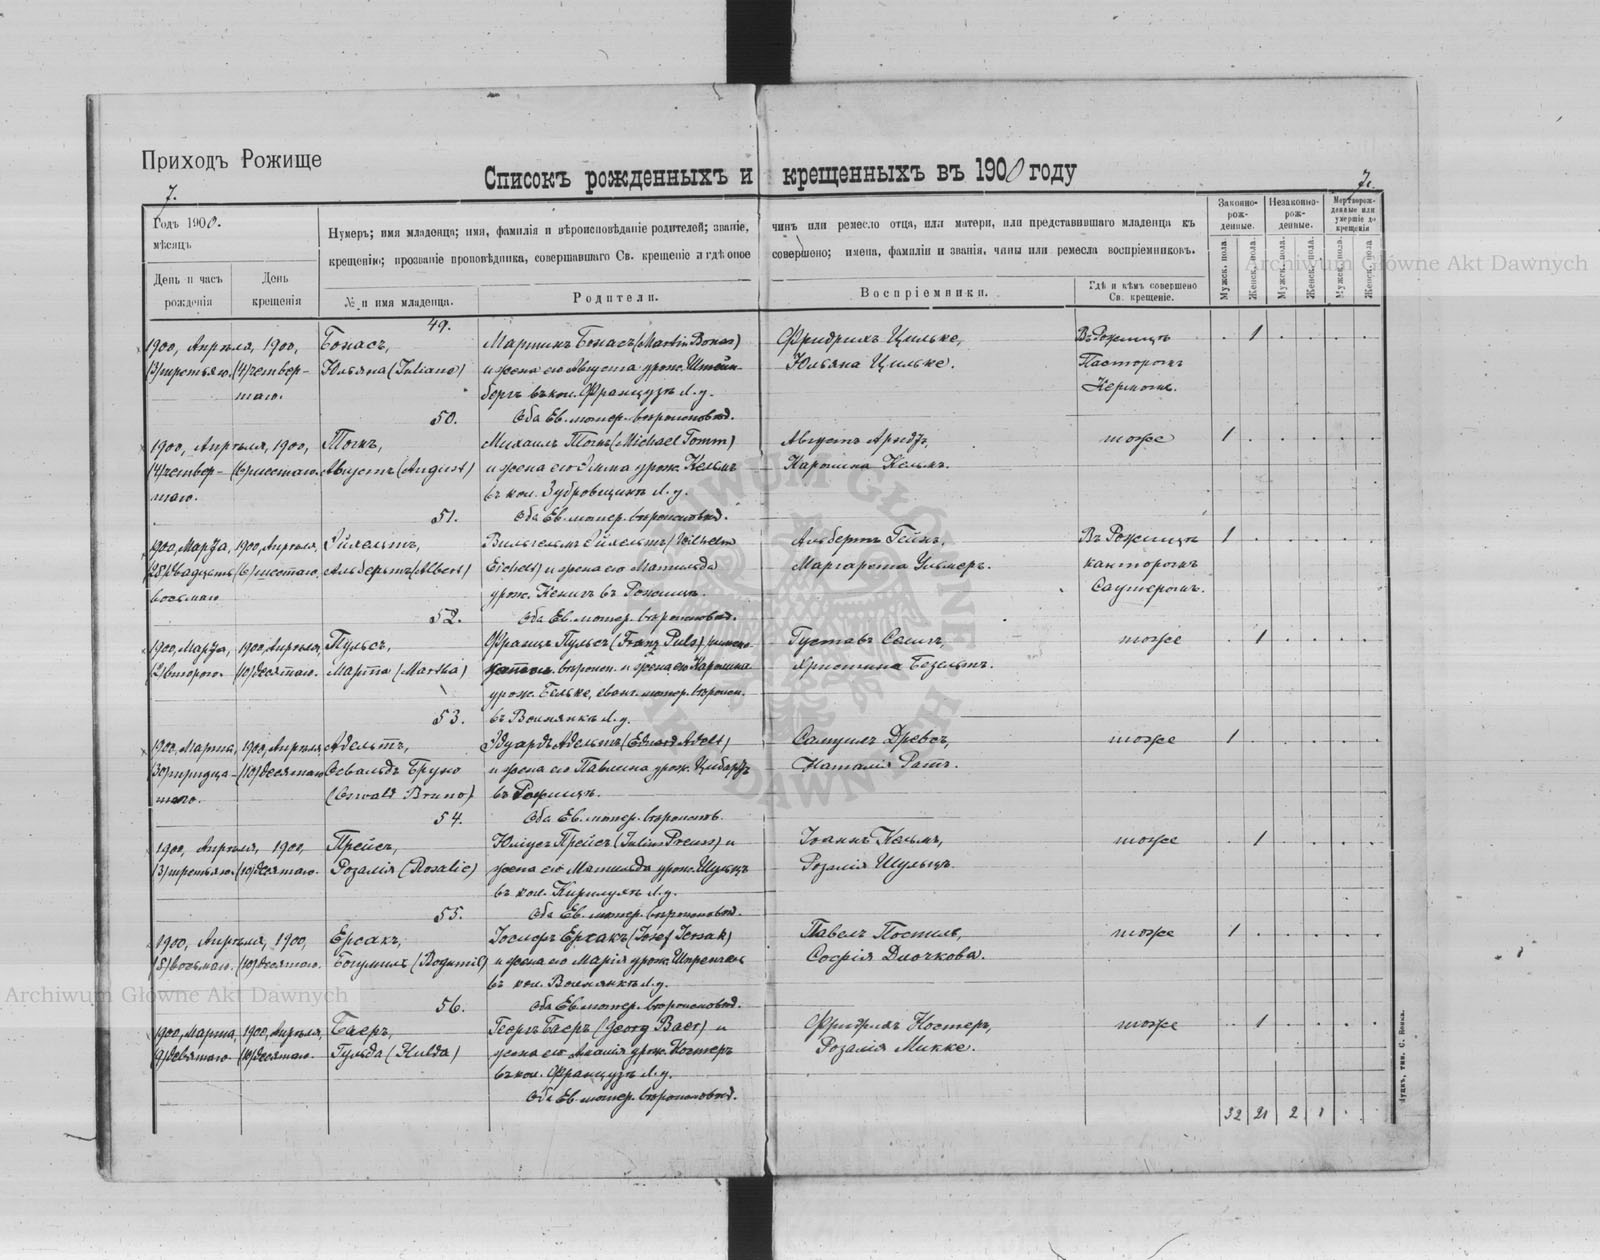 Приходъ Рожище
Списокъ рожденныхъ и крещенныхъ въ 1900 году
7.
7.
Годъ 1900.
мѣсяцъ
День и часъ рожденія
День крещенія
Нумеръ; имя младенца; имя, фамилія и вѣроисповѣданіе родителей; званіе, чинъ или ремесло отца, или матери, или представившаго младенца къ
крещенію; прозваніе проповѣдника, совершавшаго Св. крещеніе и гдѣ оное совершено; имена, фамиліи и званія, чины или ремесла воспріемниковъ.
№ и имя младенца.
Родители.
Воспріемники.
Гдѣ и кѣмъ совершено Св. крещеніе.
Законно-рож-денные.
Незаконно-рож-денные.
Мертворож-денные или умершіе до крещенія
Мужск. пола.
Женск. пола.
Мужск. пола.
Женск. пола.
Мужск. пола.
Женск. пола.
49.
1900, Апрѣля, 1900,
(3) третьяго. (4) четвер-
таго.
Бонасъ,
Юльяна (Juliana)
Мартинъ Бонасъ (Martin Bonas)
и жена его Августа урож. Штейн-
бергъ въ кол. Французъ Л. у.
Оба Ев. лютер. вѣроисповѣд.
Фридрихъ Цильке,
Юльяна Цильке.
Въ Рожищѣ
Пасторомъ
1
50.
1900, Апрѣля, 1900,
(4) четвер- (6) шестаго.
таго.
Томъ,
Августъ (August)
Михаилъ Томъ (Michael Tomm)
и жена его Эмма урож. Кельмъ
въ кол. Зубровщинѣ Л. у.
Оба Ев. лютер. вѣроисповѣд.
Августъ Арндъ,
Каролина Кельмъ.
тоже
1
51.
1900, Марта, 1900, Апрѣля,
(28) двадцать (6) шестаго.
восьмаго
Эйхельтъ,
Альбертъ (Albert)
Вильгельмъ Эйхельтъ (Wilhelm
Eichelt) и жена его Матильда
урож. Кенигъ въ Рожищѣ.
Оба Ев. лютер. вѣроисповѣд.
Альбертъ Гейнъ,
Маргарета Ульмеръ.
Въ Рожищѣ
канторомъ
Саутеромъ.
1
52.
1900, Марта, 1900, Апрѣля,
(2) втораго. (10) десятаго.
Пульсъ,
Марта (Martha)
Францъ Пульсъ (Franz Puls)
вѣроисп. и жена его Каролина
урож. Гельке, еванг. лютер. вѣроисп.
въ Волнянкѣ Л. у.
Густавъ
Христина Безельтъ.
тоже
1
53.
1900, Марта, 1900, Апрѣля,
(30) тридца- (10) десятаго
таго.
Адельтъ,
Освальдъ Бруно
(Oswald Bruno)
Эдуардъ Адельтъ (Eduard Adelt)
и жена его Павлина урож. Цибартъ
въ Рожищѣ.
Оба Ев. лютер. вѣроисповѣд.
Самуилъ Древсъ,
Наталія Ратъ.
тоже
1
54.
1900, Апрѣля, 1900,
(3) третьяго. (10) десятаго.
Прейсъ,
Розалія (Rosalie)
Юліусъ Прейсъ (Julius Preuss) и
жена его Матильда урож. Шульцъ
въ кол. Кирилухѣ Л. у.
Оба Ев. лютер. вѣроисповѣд.
Іоаннъ Кельмъ,
Розалія Шульцъ.
тоже
1
55.
1900, Апрѣля, 1900,
(8) восьмаго. (10) десятаго.
Ерсакъ,
Богумилъ (Bogumil)
Іосифъ Ерсакъ (Josef Jersak)
и жена его Марія урож.
въ кол. Волнянкѣ Л. у.
Оба Ев. лютер. вѣроисповѣд.
Павелъ Поспиль,
Софія Дмочкова.
тоже
1
56.
1900, Марта, 1900, Апрѣля,
(9) девятаго (10) десятаго.
Баеръ,
Гульда (Hulda)
Георгъ Баеръ (Georg Baer) и
жена его Амалія урож. Костеръ
въ кол. Французъ Л. у.
Оба Ев. лютер. вѣроисповѣд.
Фридрихъ Костеръ,
Розалія Микке.
тоже
1
32 21 2 1
Archiwum Główne Akt Dawnych
Archiwum Główne Akt Dawnych
ARCHIWUM GŁÓWNE AKT DAWNYCH